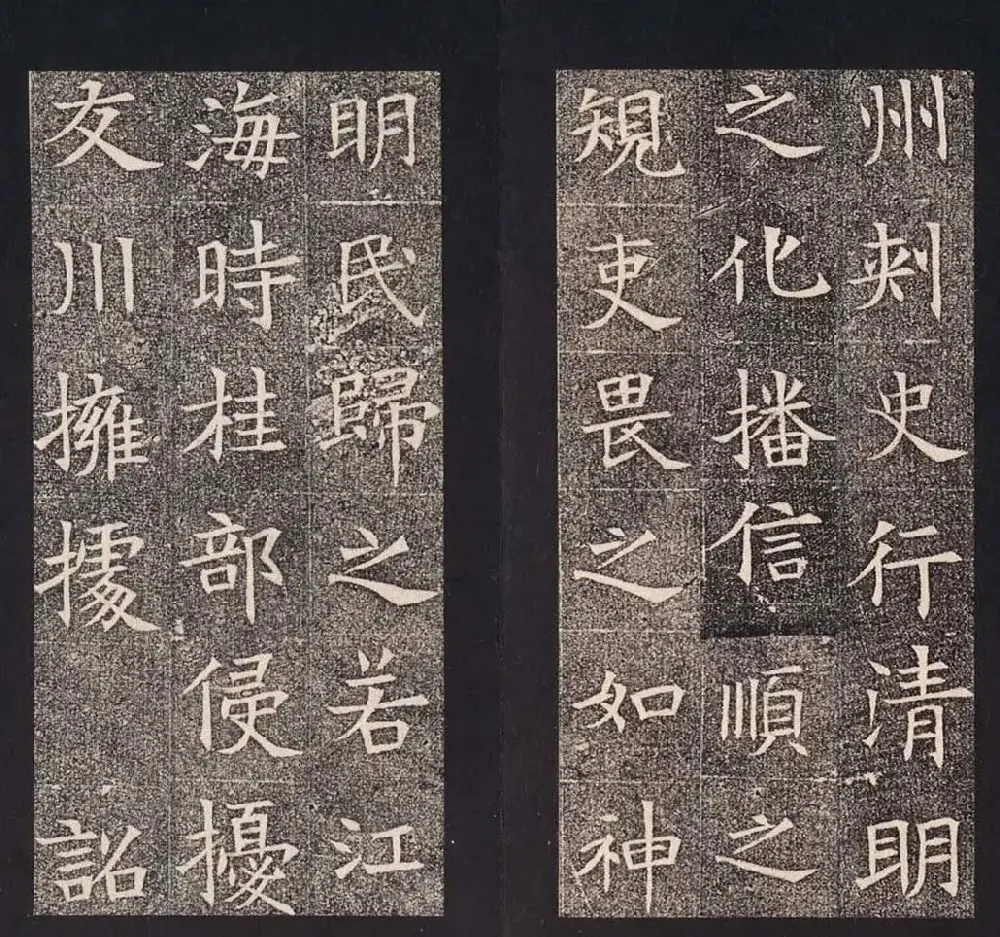 州刾史行清明
之化播信順之
䂓吏畏之如神
明民歸之若江
海時桂部侵擾
交川擁據 詔